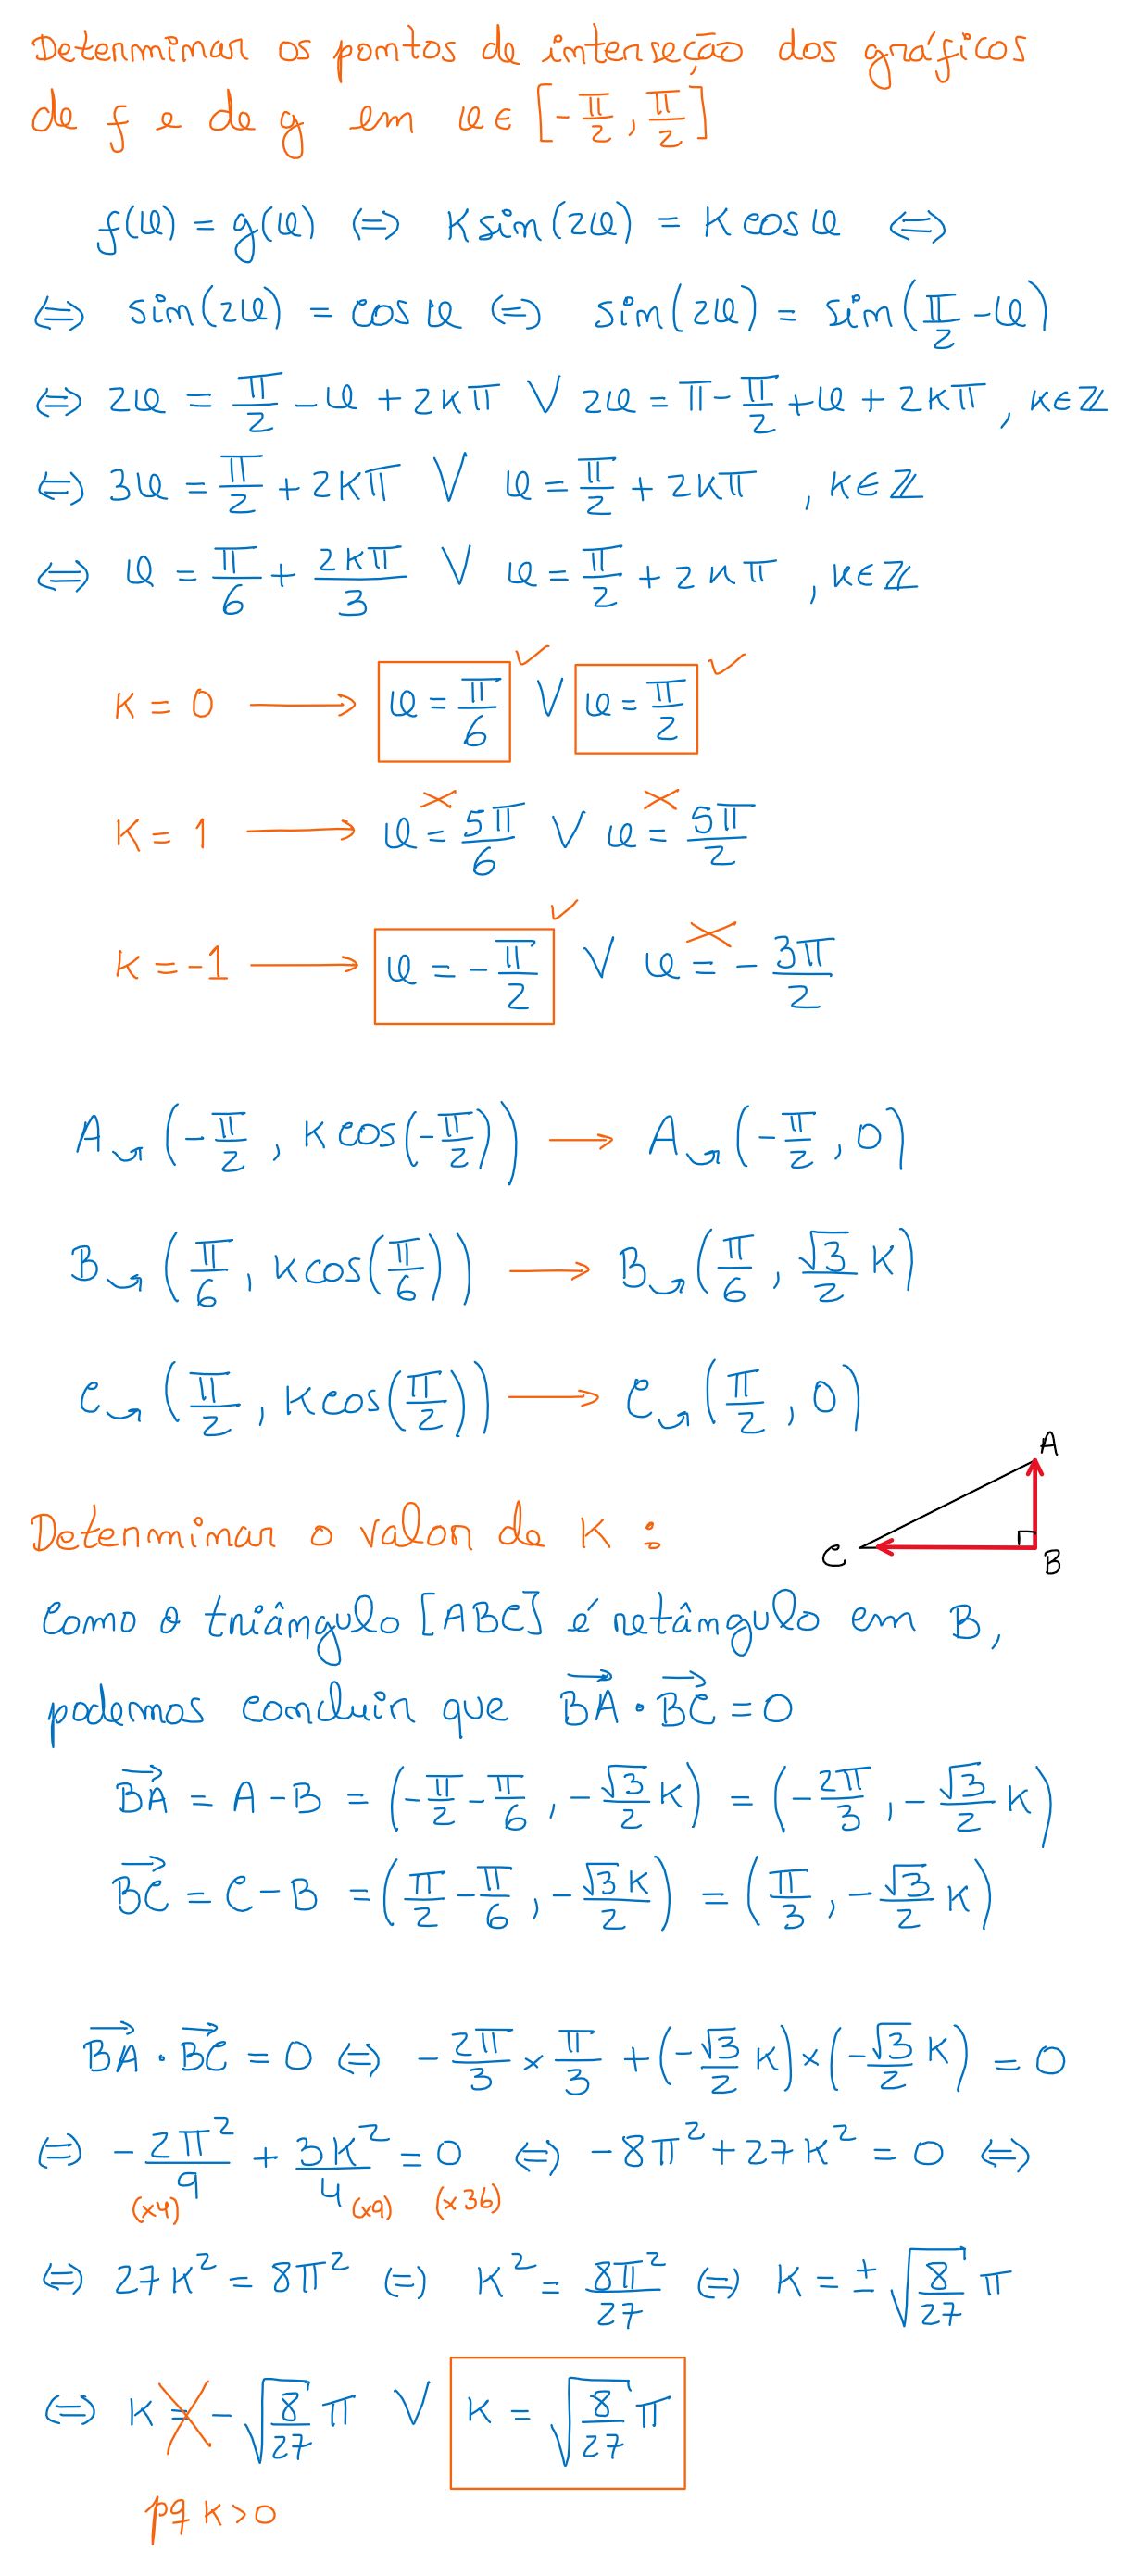 Determinar os pontos de interseção dos gráficos
de f e de g em x ∈ [-π/2, π/2]
f(x) = g(x) ⇔ K sin(2x) = K cos x ⇔
⇔ sin(2x) = cos x ⇔ sin(2x) = sin(π/2 - x)
⇔ 2x = π/2 - x + 2Kπ ∨ 2x = π - π/2 + x + 2Kπ, K ∈ ℤ
⇔ 3x = π/2 + 2Kπ ∨ x = π/2 + 2Kπ, K ∈ ℤ
⇔ x = π/6 + 2Kπ/3 ∨ x = π/2 + 2Kπ, K ∈ ℤ
K = 0 ⟶ x = π/6 ✓ ∨ x = π/2 ✓
K = 1 ⟶ x = 5π/6 × ∨ x = 5π/2 ×
K = -1 ⟶ x = -π/2 ✓ ∨ x = -3π/2 ×
A ↝ (-π/2, K cos(-π/2)) ⟶ A ↝ (-π/2, 0)
B ↝ (π/6, K cos(π/6)) ⟶ B ↝ (π/6, √3/2 K)
C ↝ (π/2, K cos(π/2)) ⟶ C ↝ (π/2, 0)
A
Determinar o valor de K :
C
B
Como o triângulo [ABC] é retângulo em B,
podemos concluir que BA⃗ · BC⃗ = 0
BA⃗ = A - B = (-π/2 - π/6, -√3/2 K) = (-2π/3, -√3/2 K)
BC⃗ = C - B = (π/2 - π/6, -√3K/2) = (π/3, -√3/2 K)
BA⃗ · BC⃗ = 0 ⇔ -2π/3 × π/3 + (-√3/2 K) × (-√3/2 K) = 0
⇔ -2π²/9 + 3K²/4 = 0 ⇔ -8π² + 27K² = 0 ⇔
(×4) (×9) (×36)
⇔ 27K² = 8π² ⇔ K² = 8π²/27 ⇔ K = ±√(8/27) π
⇔ K = -√(8/27) π ∨ K = √(8/27) π
pq K > 0